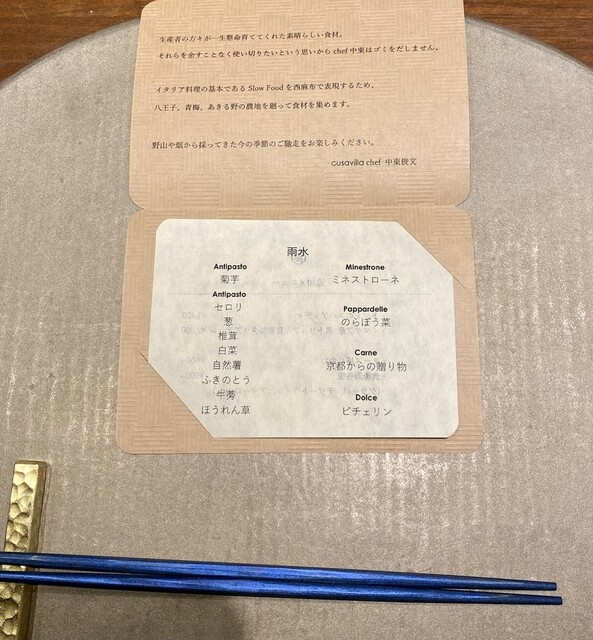 生産者の方々が一生懸命育ててくれた素晴らしい食材。
それらを余すことなく使い切りたいという思いから chef 中東はゴミをだしません。
イタリア料理の基本である Slow Food を西麻布で表現するため、
八王子、青梅、あきる野の農地を廻って食材を集めます。
野山や畑から採ってきた今の季節のご馳走をお楽しみください。
cusavilla chef 中東俊文
雨水
Antipasto
菊芋
Antipasto
セロリ
葱
椎茸
白菜
自然薯
ふきのとう
牛蒡
ほうれん草
Minestrone
ミネストローネ
Pappardelle
のらぼう菜
Carne
京都からの贈り物
Dolce
ビチェリン